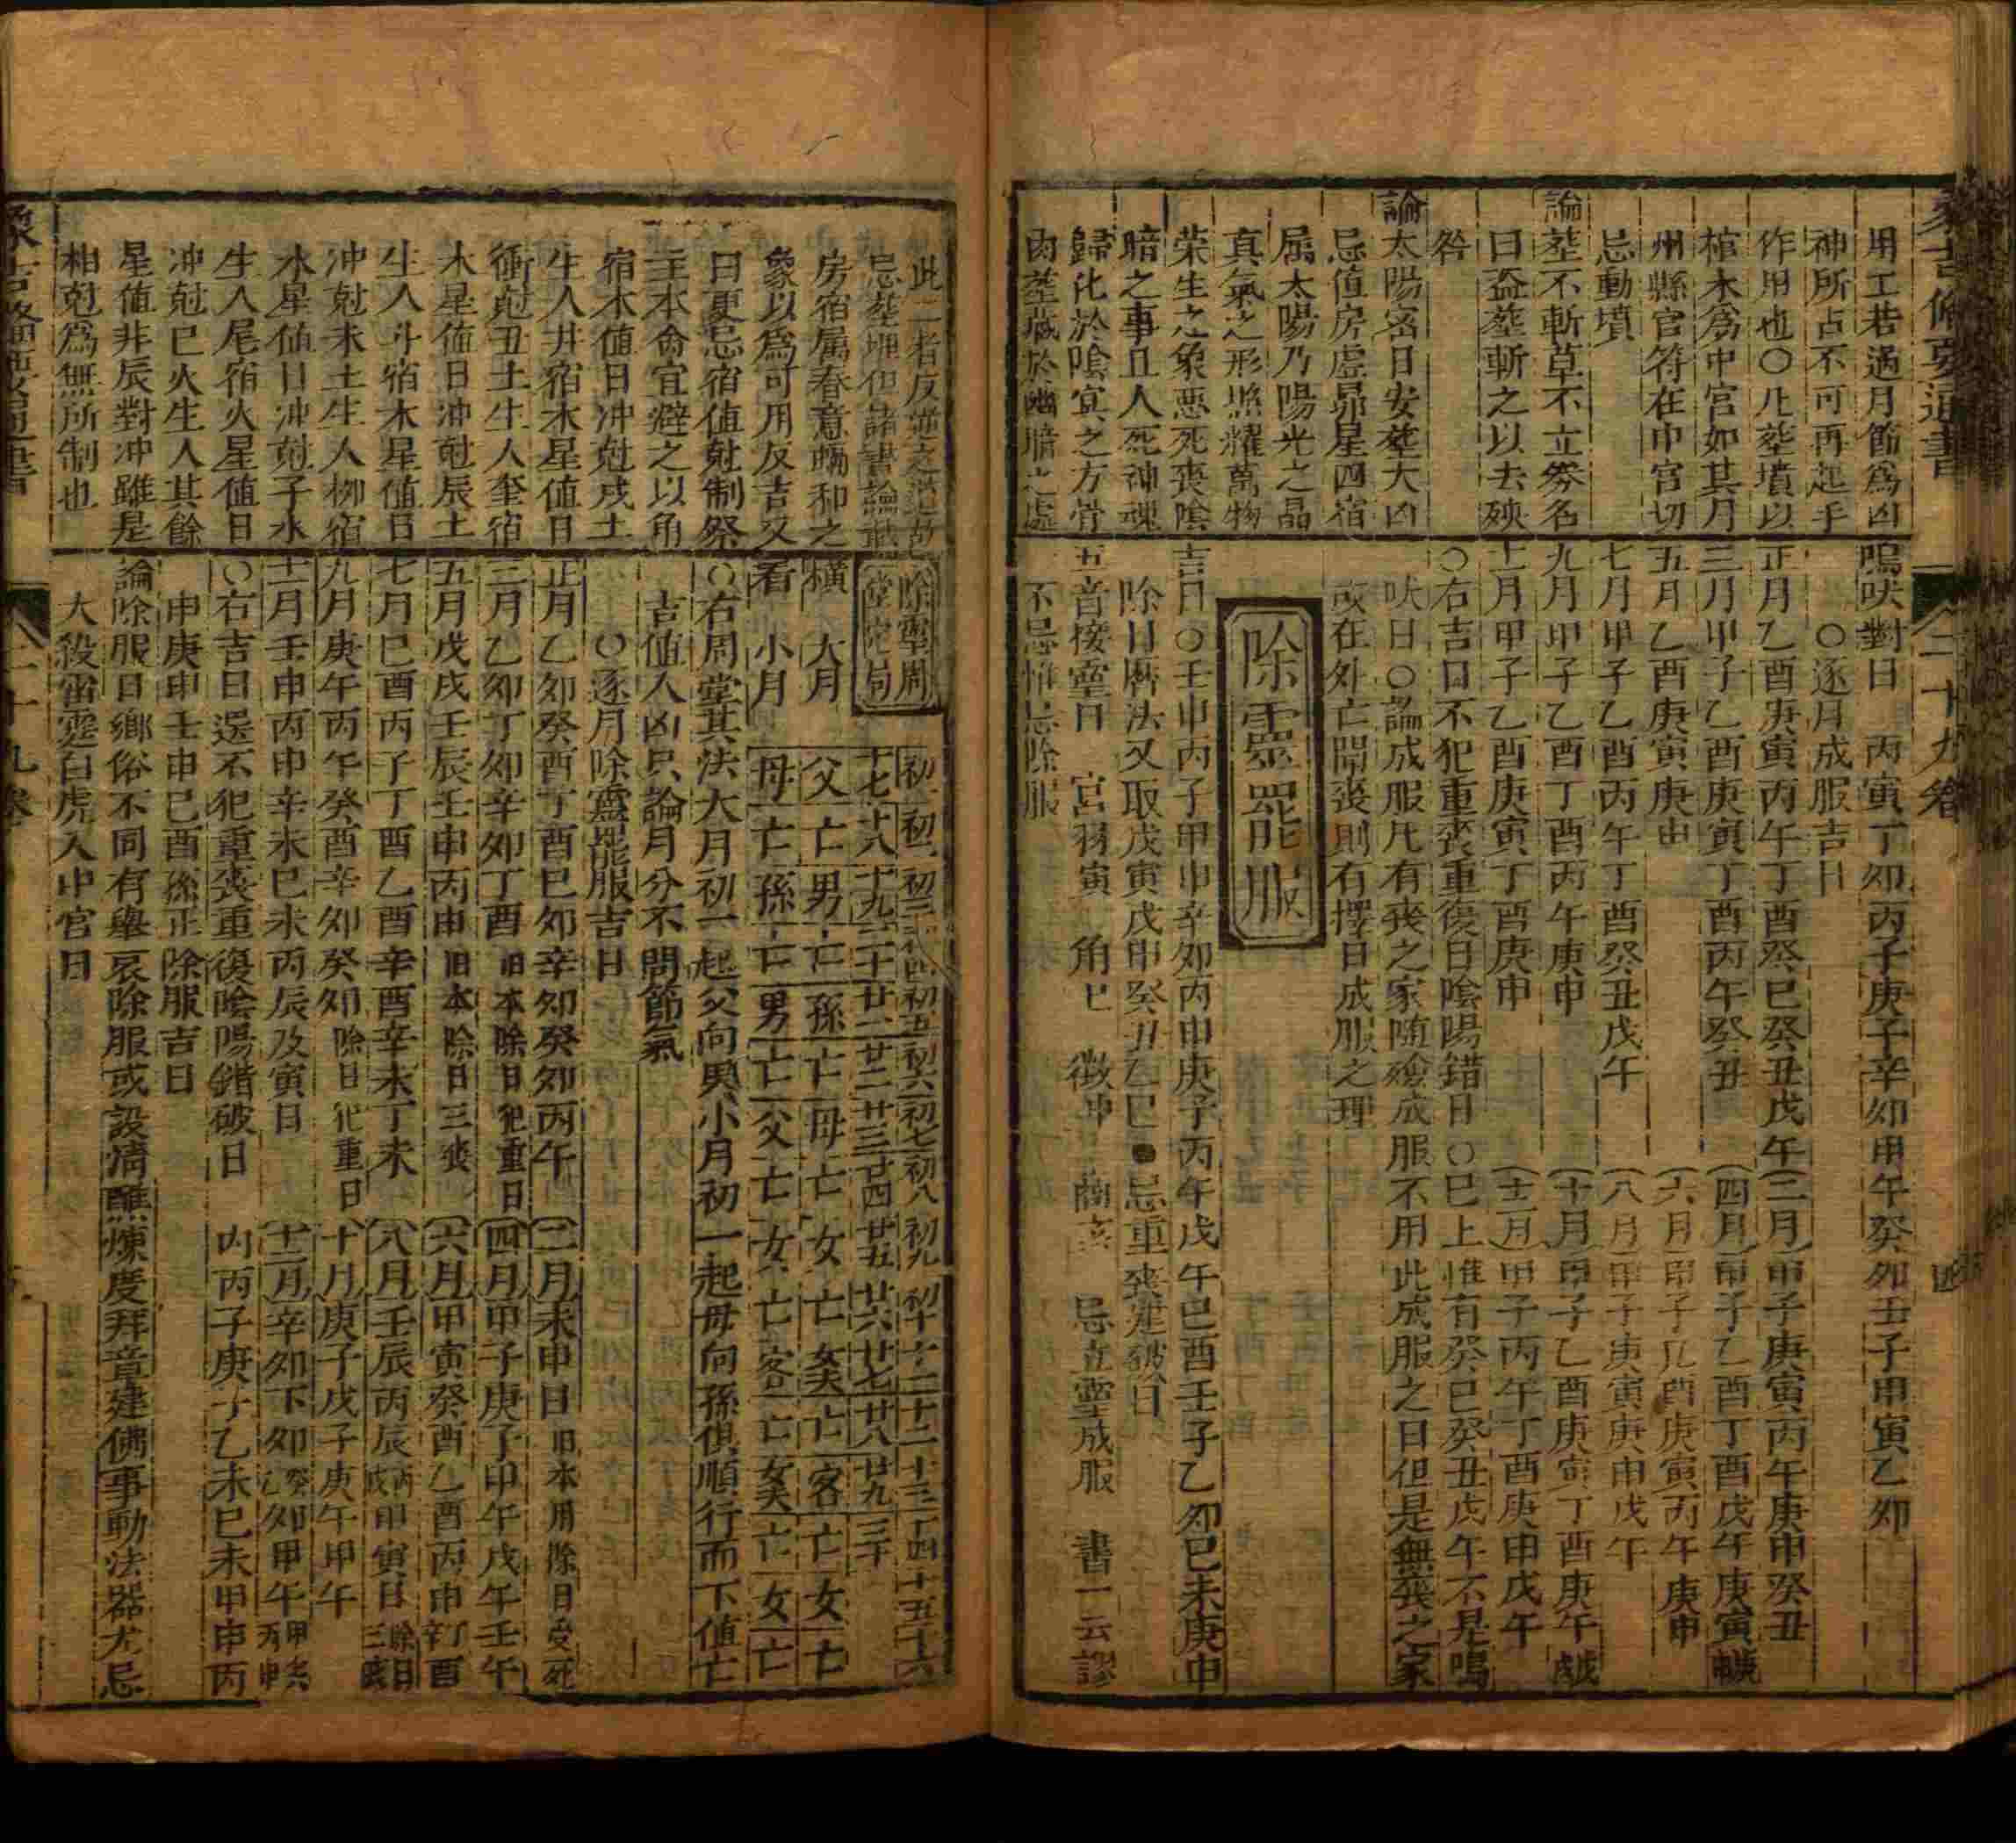 用工若遇月節爲凶
神所占不可再起手
作用也〇凡塟墳以
棺木爲中宮如某月
州縣官符在中宮切
忌動墳
論塟不斬草不立券名
曰盗塟斬之以去殃
咎
論太陽宻日安塟大凶
忌值房虛昴星四宿
属太陽乃陽光之晶
真氣之形照耀萬物
荣生之象惡死喪陰
暗之事且人死神魂
歸化於陰㝠之方骨
肉塟藏於幽暗之處
鳴吠對日 丙寅丁夘丙子庚子辛夘甲午癸夘壬子甲寅乙夘
〇逐月成服吉日
正月乙酉庚寅丙午丁酉癸巳癸丑戊午 二月甲子庚寅丙午庚申癸丑
三月甲子乙酉庚寅丁酉丙午癸丑 四月甲子乙酉丁酉戊午庚寅
五月乙酉庚寅庚申 六月甲子乙酉庚寅丙午庚申
七月甲子乙酉丙午丁酉癸丑戊午 八月甲子庚寅庚申戊午
九月甲子乙酉丁酉丙午庚申 十月甲子乙酉庚寅丁酉庚午
十一月甲子乙酉庚寅丁酉庚申 十二月甲子丙午丁酉庚申戊午
〇右吉日不犯重喪重復日陰陽錯日〇巳上惟有癸巳癸丑戊午不是鳴
吠日〇論成服凡有喪之家随殮成服不用此成服之日但是無喪之家
或在外亡開喪則有擇日成服之理
除靈罷服
吉日〇壬申丙子甲申辛夘丙申庚子丙午戊午巳酉壬子乙夘巳未庚申
除日曆法又取戊寅戊申癸丑乙巳●忌重喪建破日
五音接靈日 宮羽寅 角巳 徵申 商亥 忌立靈成服 書一云謬
不忌惟忌除服
此二者反逆之道故
忌塟埋但諸書論誌
房宿属春意蝸和之
象以為可用反吉又
曰夏忌宿值尅制祭
主本命宜避之以角
宿木值日冲尅戌土
生人井宿木星值日
衝尅丑土生人奎宿
木星值日冲尅辰土
生人斗宿木星值日
冲尅未土生人柳宿
水星值日冲尅子水
生人尾宿火星值日
冲尅巳火生人其餘
星值非辰對冲雖是
相尅爲無所制也
除靈周
堂定局
初一初二初三初四初五初六初七初八初九初十十一十二十三十四十五十六
十七十八十九二十廿一廿二廿三廿四廿五廿六廿七廿八廿九三十
橫 大月 父亡男亡孫亡母亡女亡婿亡客亡女亡
看 小月 母亡孫亡男亡父亡女亡客亡婿亡女亡
〇右周堂其法大月初一起父向男小月初一起母向孫俱順行而下值亡
吉值人凶只論月分不問節氣
〇逐月除靈罷服吉日
正月乙夘癸酉丁酉巳夘辛夘癸夘丙午 二月未申日旧本用除日受死
三月乙夘丁夘辛夘丁酉旧本除日犯重日 四月甲子庚子甲午戊午壬午
五月戊戌壬辰壬申丙申旧本除日三喪 六月甲寅癸酉乙酉丙申丁酉辛酉
七月巳酉丙子丁酉乙酉辛酉辛未丁未 八月壬辰丙辰甲寅日除日三喪
九月庚午丙午癸酉辛夘癸夘除日犯重日 十月庚子戊子庚午甲午
十一月壬申丙申辛未巳未丙辰及寅日 十二月辛夘丁夘癸夘乙夘甲午
〇右吉日選不犯重喪重復陰陽錯破日 内丙子庚子乙未巳未甲申丙
申庚申壬申巳酉孫正除服吉日
論除服日鄉俗不同有舉哀除服或設清醮煉度拜章建佛事動法器尤忌
大殺雷霆白虎入中宮日
象吉備要通書
二十九卷
象吉備要通書
二十九卷